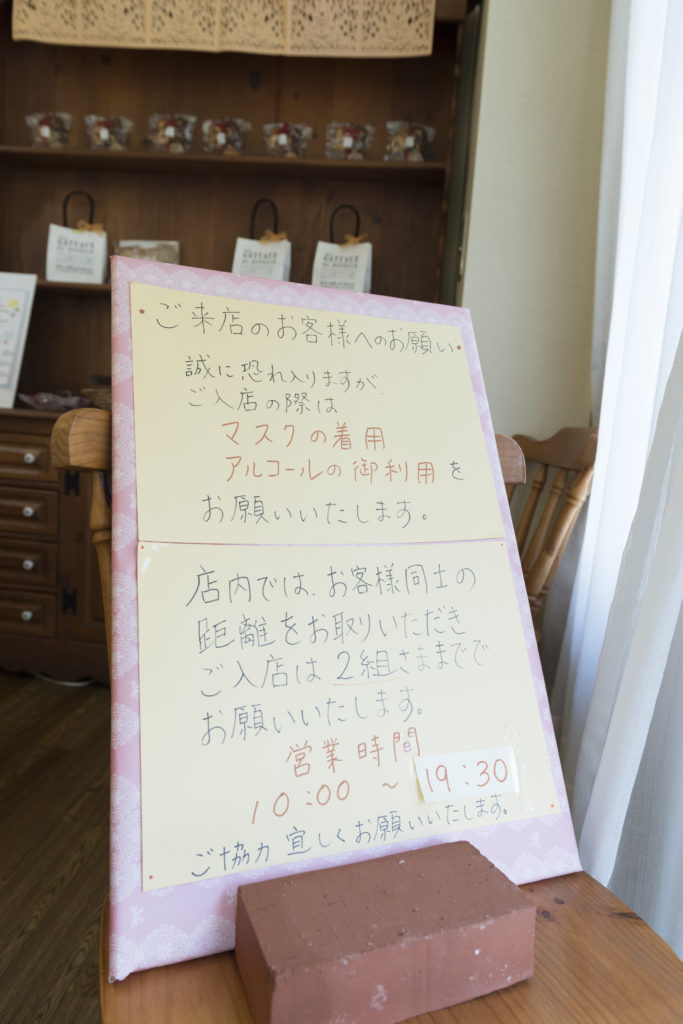 GÂTEAUX
ご来店のお客様へのお願い
誠に恐れ入りますが、
ご入店の際は
マスクの着用
アルコールの御利用を
お願いいたします。
店内では、お客様同士の
距離をお取りいただき
ご入店は2組さままでで
お願いいたします。
営業時間
10:00 ~ 19:30
ご協力 宜しくお願いいたします。